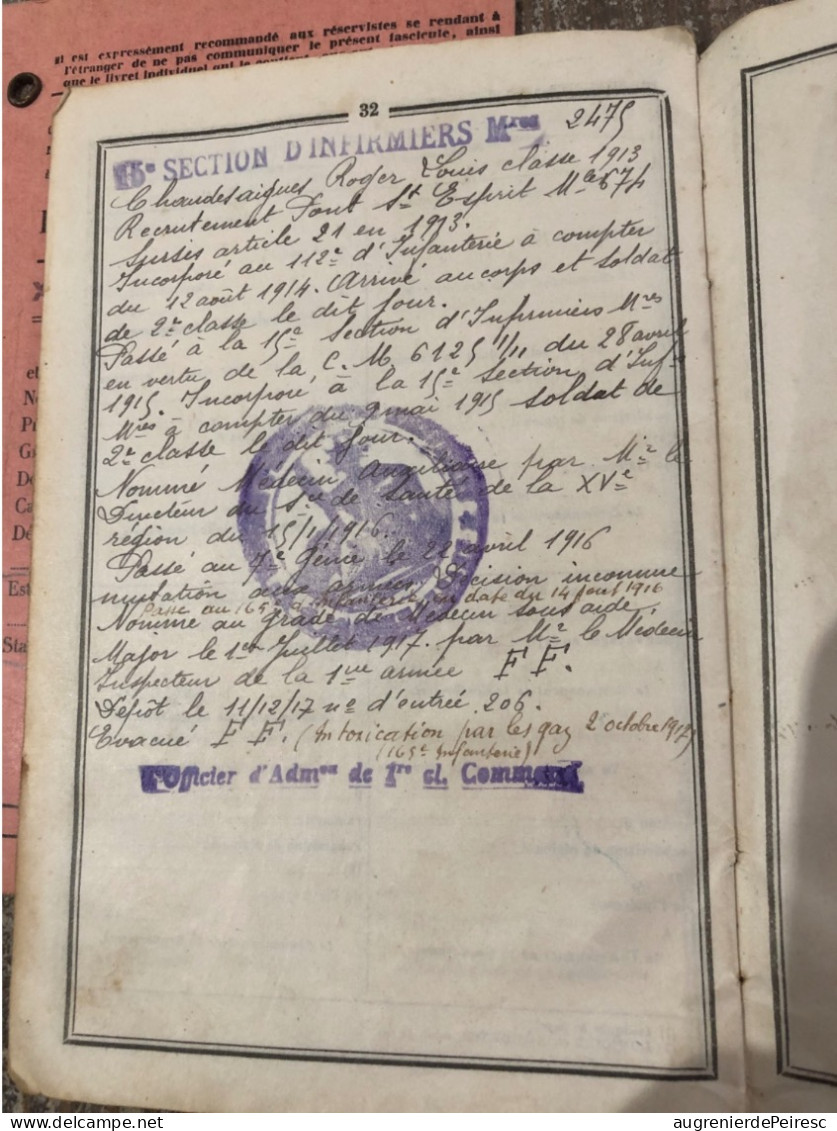 Il est expressément recommandé aux réservistes se rendant à
l'étranger de ne pas communiquer le présent fascicule, ainsi
que le livret individuel qui le contient
32
15e SECTION D'INFIRMIERS Mres 2475
Chaudesaigues Roger Louis classe 1913
Recrutement Pont St Esprit Mle 674
Sursis article 21 en 1913.
Incorporé au 112e d'Infanterie à compter
du 12 août 1914. Arrivé au corps et soldat
de 2e classe le dit jour.
Passé à la 15e Section d'Infirmiers Mres
en vertu de la C. M 6125 1/11 du 28 avril
1915. Incorporé à la 15e Section d'Infrs
Mres à compter du 9 mai 1915 soldat de
2e classe le dit jour.
Nommé Médecin Auxiliaire par Mr le
Directeur du Sce de Santé de la XVe
région du 15/1/1916.
Passé au 7e Génie le 22 avril 1916
mutation aux armées, Décision inconnue
Passé au 165e d'Infanterie en date du 14 1916
Nommé au grade de Médecin sous aide
Major le 1er Juillet 1917. par Mr le Médecin
Inspecteur de la 1re armée FF.
Dépôt le 11/12/17 no d'entrée 206.
Evacué FF. (Intoxication par les gaz 2 octobre 1917)
(165e Infanterie)
l'Officier d'Admon de 1re cl. Command
et
Est
Sta
augrenierdePeiresc